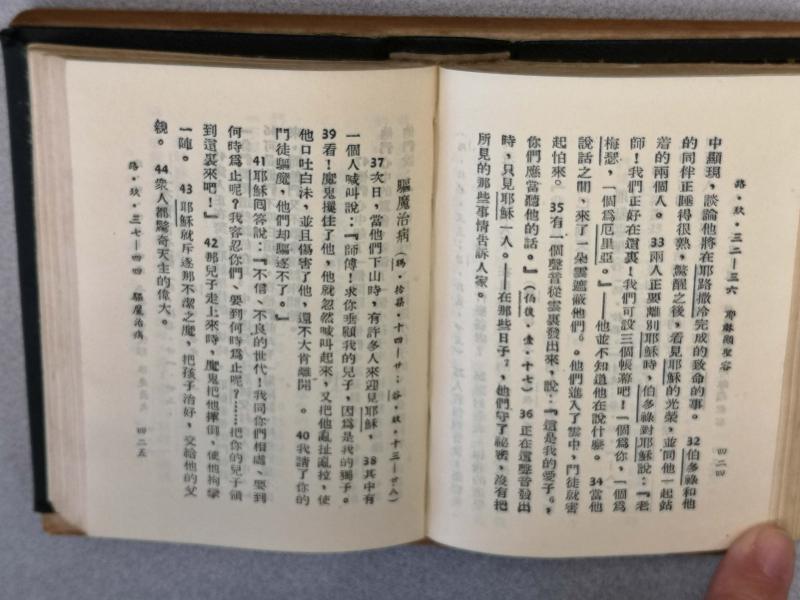 路·玖·三二—三六　耶穌顯聖容　四二四
中顯現，談論他將在耶路撒冷完成的致命的事。　32 伯多祿和他
的同伴正睡得很熟，驚醒之後，看見耶穌的光榮，並同他一起站
着的兩個人。　33 兩人正要離別耶穌時，伯多祿對耶穌說：『老
師！我們正好在這裏！我們可設三個帳幕吧！一個爲你，一個爲
梅瑟，一個爲厄里亞。』——他並不知道他在說什麼。　34 當他
說話之間，來了一朵雲遮蔽他們。他們進入了雲中，門徒就害
起怕來。　35 有一個聲音從雲裏發出來，說：『這是我的愛子，
你們應當聽他的話。』（伯後·壹·十七）　36 正在這聲音發出
時，只見耶穌一人。——在那些日子，他們守了祕密，沒有把
所見的那些事情告訴人家。
驅魔治病（瑪·拾柒·十四—廿；谷·玖·十三—廿八）
37 次日，當他們下山時，有許多人來迎見耶穌，　38 其中有
一個人喊叫說：『師傅！求你垂顧我的兒子，因爲是我的獨子。
39 看！魔鬼攫住了他，他就忽然喊叫起來，又把他亂扯亂拉，使
他口吐白沬，並且傷害了他，還不大肯離開。　40 我請了你的
門徒驅魔，他們却驅逐不了。』
41 耶穌囘答說：『不信、不良的世代！我同你們相處、要到
何時爲止呢？我容忍你們、要到何時爲止呢？……把你的兒子領
到這裏來吧！』　42 那兒子走上來時，魔鬼把他摔倒，使他拘攣
一陣。　43 耶穌就斥逐那不潔之魔，把孩子治好，交給他的父
親。　44 衆人都驚奇天主的偉大。
路·玖·三七—四四　驅魔治病　四二五